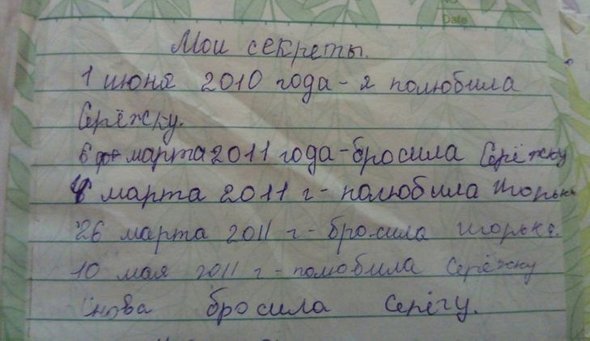 Мои секреты.
1 июня 2010 года - я полюбила
Серёжку.
6 марта 2011 года - бросила Серёжку
марта 2011 г - полюбила Игорька
26 марта 2011 г - бросила Игорька.
10 мая 2011 г - полюбила Серёжку
Снова бросила Серёгу.